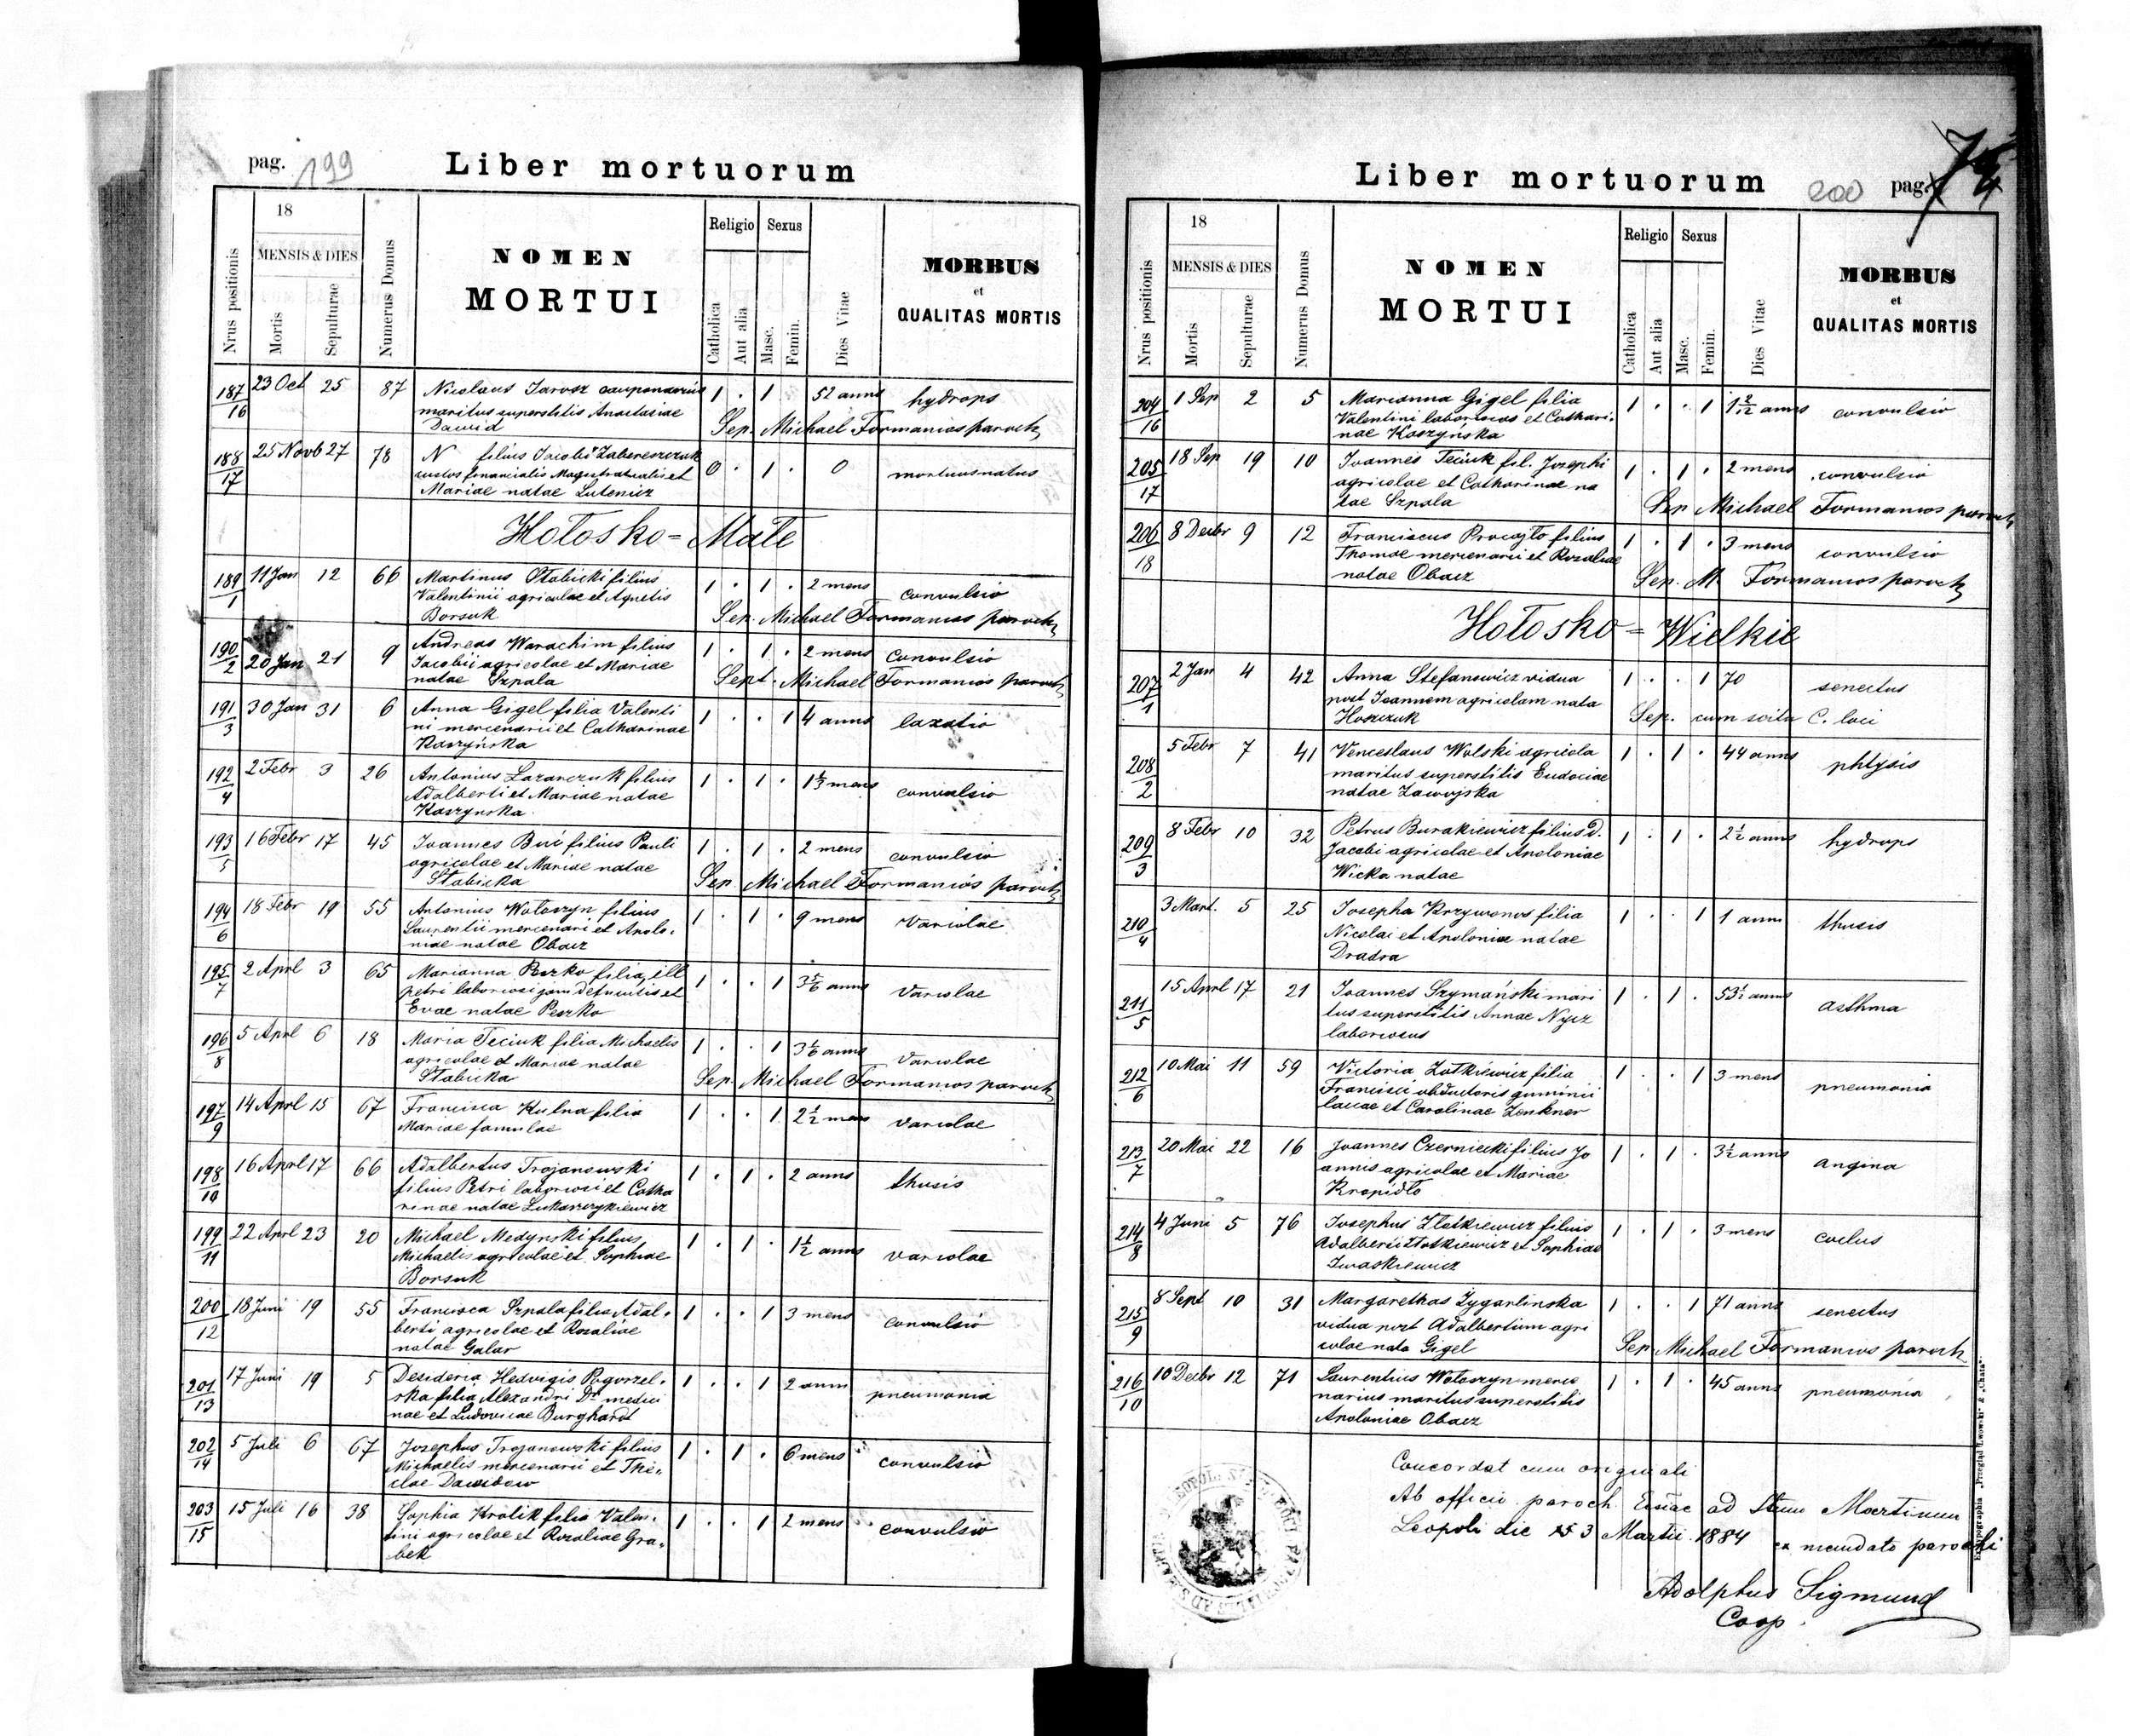 pag. 199
Liber mortuorum
18
Nrus positionis
MENSIS & DIES
Mortis
Sepulturae
Numerus Domus
NOMEN
MORTUI
Religio
Catholica
Aut alia
Sexus
Masc.
Femin.
Dies Vitae
MORBUS
et
QUALITAS MORTIS
187/16 23 Oct 25 87 Nicolaus Jarosz cauponarius 1 . 1 52 anns hydrops
maritus superstitis Anastasiae
Dawid Sep. Michael Formanios paroch
188/17 25 Novb 27 78 N filius Jacobi Zabereszczuk 0 . 1 . 0 mortuus natus
custos financialis Magistratualis et
Mariae natae Lutenicz
Hołosko = Małe
189/1 11 Jan 12 66 Martinus Stabicki filius 1 . 1 . 2 mens convulsio
Valentinii agricolae et Agnetis
Borsuk Sep. Michael Formanios paroch
190/2 20 Jan 21 9 Andreas Warachim filius 1 . 1 . 2 mens convulsio
Jacobii agricolae et Mariae
natae Szpala Sept. Michael Formanios paroch
191/3 30 Jan 31 6 Anna Gigel filia Valenti 1 . . 1 4 anns laxatio
ni mercenarii et Catharinae
Kaszyńska
192/4 2 Febr 3 26 Antonius Lazarczuk filius 1 . 1 . 1 1/3 mens convulsio
Adalberti et Mariae natae
Kaszynska
193/5 16 Febr 17 45 Joannes Buć filius Pauli 1 . 1 . 2 mens convulsio
agricolae et Mariae natae
Stabicka Sep. Michael Formaniós paroch
194/6 18 Febr 19 55 Antonius Wołoszyn filius 1 . 1 . 9 mens Variolae
Laurentii mercenari et Apolo-
niae natae Obacz
195/7 2 Aprl 3 65 Marianna Peszko filia ill 1 . . 1 3 5/6 anns Variolae
petri laboriosi jam defunctis et
Evae natae Peszko
196/8 5 Aprl 6 18 Maria Teciuk filia Michaelis 1 . . 1 3 1/6 anns Variolae
agricolae et Mariae natae
Stabicka Sep. Michael Formanios paroch
197/9 14 Aprl 15 67 Francisca Kulna filia 1 . . 1 2 1/2 mens variolae
Mariae famulae
198/10 16 Aprl 17 66 Adalbertus Trojanowski 1 . 1 . 2 anns thusis
filius Petri laboriosi et Catha
rinae natae Lukaszykiewicz
199/11 22 Aprl 23 20 Michael Medynski filius 1 . 1 . 1 1/2 anns variolae
Michaelis agricolae et Sophiae
Borsuk
200/12 18 Juni 19 55 Francisca Szpala filia Adal- 1 . . 1 3 mens convulsio
berti agricolae et Rozaliae
natae Galar
201/13 17 Juni 19 5 Desideria Hedvigis Pogorzel- 1 . . 1 2 anns pneumonia
ska filia Alexandri Dr medici
nae et Ludovicae Burghardt
202/14 5 Juli 6 67 Josephus Trojanowski filius 1 . 1 . 6 mens convulsio
Michaelis mercenarii et The-
clae Dawidow
203/15 15 Juli 16 38 Sophia Krolik filia Valen- 1 . . 1 2 mens convulsio
tini agricolae et Rozaliae Gra-
bek
Liber mortuorum
200 pag.
18
Nrus positionis
MENSIS & DIES
Mortis
Sepulturae
Numerus Domus
NOMEN
MORTUI
Religio
Catholica
Aut alia
Sexus
Masc.
Femin.
Dies Vitae
MORBUS
et
QUALITAS MORTIS
204/16 1 Sep 2 5 Marianna Gigel filia 1 . . 1 1 2/12 anns convulsio
Valentini laboriosus et Cathari-
nae Kaszyńska
205/17 18 Sep 19 10 Joannes Teciuk fil. Josephi 1 . 1 . 2 mens convulsio
agricolae et Catharinae na
tae Szpala Sep Michael Formanios paroch
206/18 8 Decbr 9 12 Franciscus Procajło filius 1 . 1 . 3 mens convulsio
Thomae mercenarii et Rozaliae
natae Obacz Sep. M. Formanios paroch
Hołosko = Wielkie
207/1 2 Jan 4 42 Anna Stefanowicz vidua 1 . . 1 70 senectus
post Joannem agricolam nata
Hoszczuk Sep. cum scitu C. loci
208/2 5 Febr 7 41 Venceslaus Wolski agricola 1 . 1 . 44 anns phtysis
maritus superstitis Eudociae
natae Zawojska
209/3 8 Febr 10 32 Petrus Burakiewicz filius d. 1 . 1 . 2 1/2 anns hydrops
Jacobi agricolae et Apoloniae
Wicka natae
210/4 3 Mart. 5 25 Josepha Krzywonos filia 1 . . 1 1 anni thusis
Nicolai et Apoloniae natae
Dradra
211/5 15 Aprl 17 21 Joannes Szymański mari 1 . 1 . 53 1/2 anns asthma
tus superstitis Annae Nycz
laboriosus
212/6 10 Mai 11 59 Victoria Zutkiewicz filia 1 . . 1 3 mens pneumonia
Francisci obductoris guminii
laccae et Carolinae Zenkner
213/7 20 Mai 22 16 Joannes Czerniecki filius Jo 1 . 1 . 3 1/2 anns angina
annis agricolae et Mariae
Kropidło
214/8 4 Juni 5 76 Josephus Złotkiewicz filius 1 . 1 . 3 mens coelus
Adalberti Złotkiewicz et Sophiae
Iwaskiewicz
215/9 8 Sept 10 31 Margarethas Zygarlinska 1 . . 1 71 anns senectus
vidua post Adalbertum agri
colae nata Gigel Sep. Michael Formanios paroch
216/10 10 Decbr 12 71 Laurentius Wołoszyn merce 1 . 1 . 45 anns pneumonia
narius maritus superstitis
Apoloniae Obacz
Concordat cum originali
Ab officio paroch. ad Stum Martinum
Leopoli die 3 Martii 1884 ex mandato parochi
Adolphus Sigmund
Coop.
Ex typographia „Przegląd Lwowski" & „Chata".